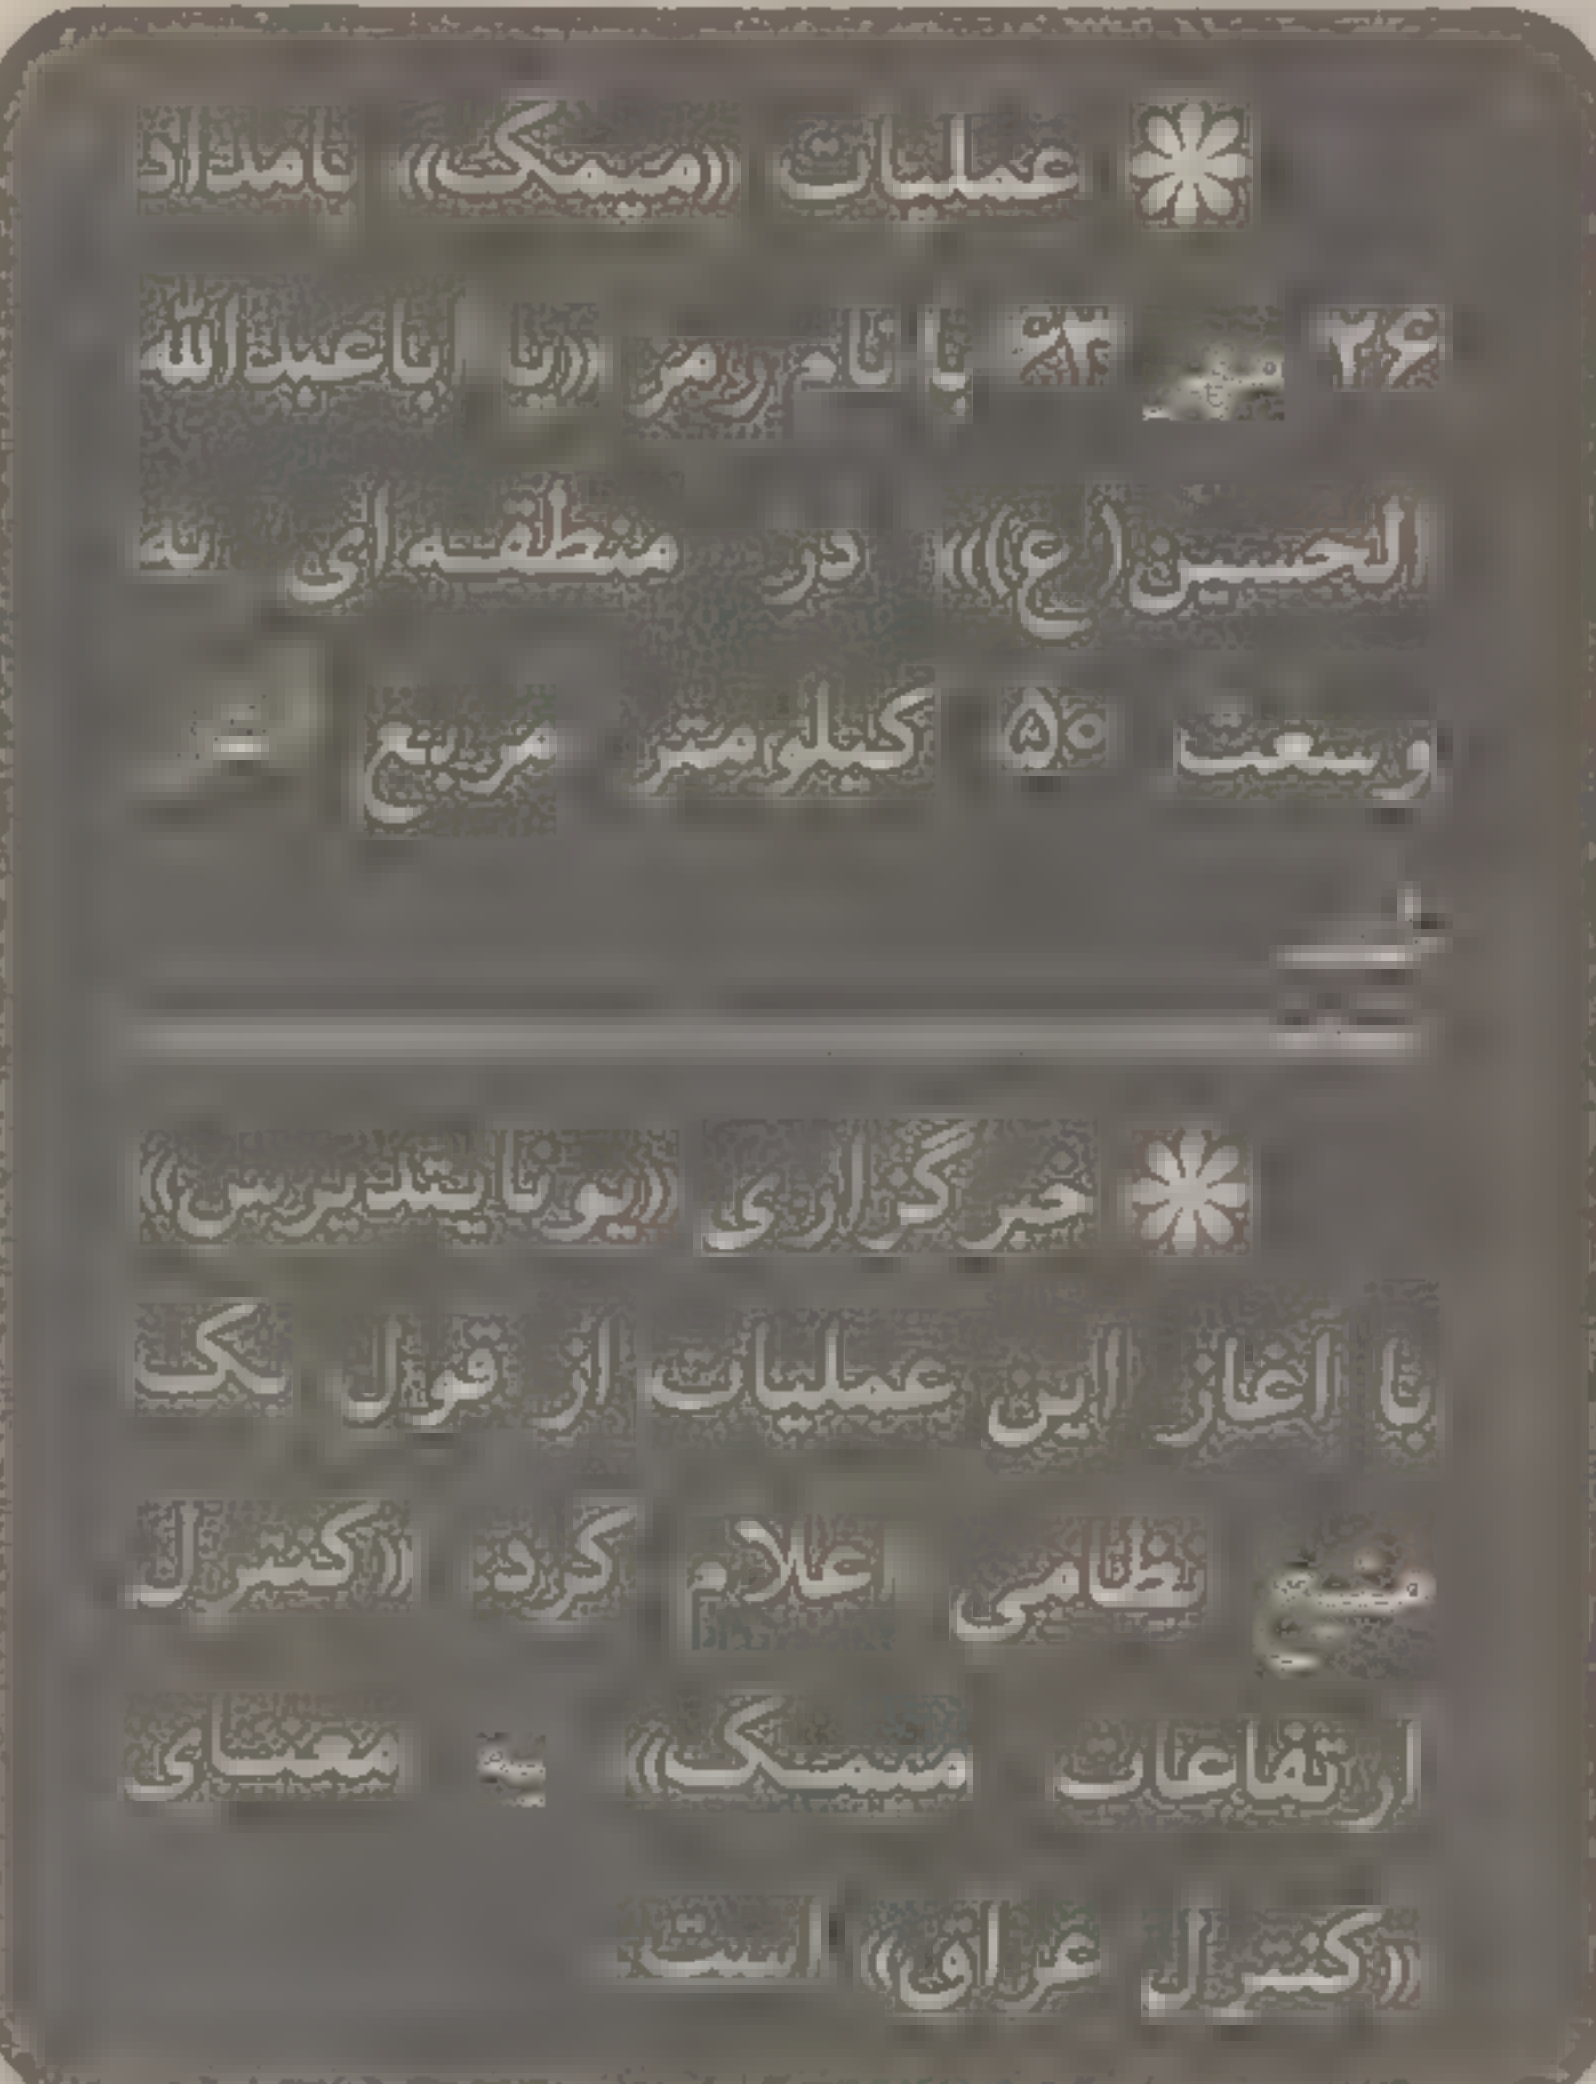 عملیات «میمک» بامداد
۲۶ ۶۳ با نام رمز «یا اباعبدالله
الحسین(ع)» در منطقه‌ای به
وسعت ۵۰ کیلومتر مربع
خبرگزاری «یونایتدپرس»
با آغاز این عملیات از قول یک
نظامی اعلام کرد «کنترل
ارتفاعات میمک» معنای
«کنترل عراق» است